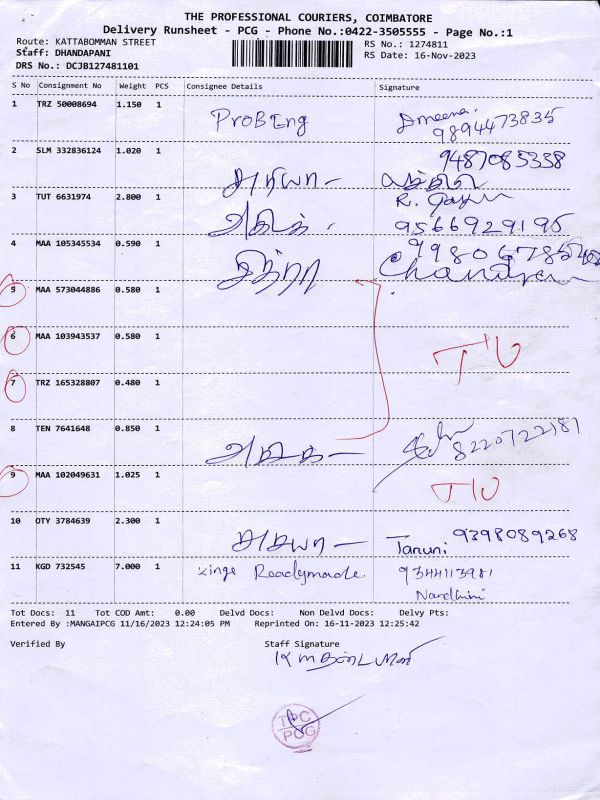 THE PROFESSIONAL COURIERS, COIMBATORE
Delivery Runsheet - PCG - Phone No.:0422-3505555 - Page No.:1
Route: KATTABOMMAN STREET RS No.: 1274811
Staff: DHANDAPANI RS Date: 16-Nov-2023
DRS No.: DCJB127481101
S No Consignment No Weight PCS Consignee Details Signature
1 TRZ 50008694 1.150 1 ProBEng Dmeena
9894473835
2 SLM 332836124 1.020 1 9487085338
3 TUT 6631974 2.800 1
9566929195
4 MAA 105345534 0.590 1 சித்ரா
5 MAA 573044886 0.580 1
6 MAA 103943537 0.580 1
7 TRZ 165328807 0.480 1
8 TEN 7641648 0.850 1 8220722181
9 MAA 102049631 1.025 1
10 OTY 3784639 2.300 1 Tanuni 9398089268
11 KGD 732545 7.000 1 Kings Readymade. 9344113981
Nandhini
Tot Docs: 11 Tot COD Amt: 0.00 Delvd Docs: Non Delvd Docs: Delvy Pts:
Entered By :MANGAIPCG 11/16/2023 12:24:05 PM Reprinted On: 16-11-2023 12:25:42
Verified By Staff Signature
TPC
PCG